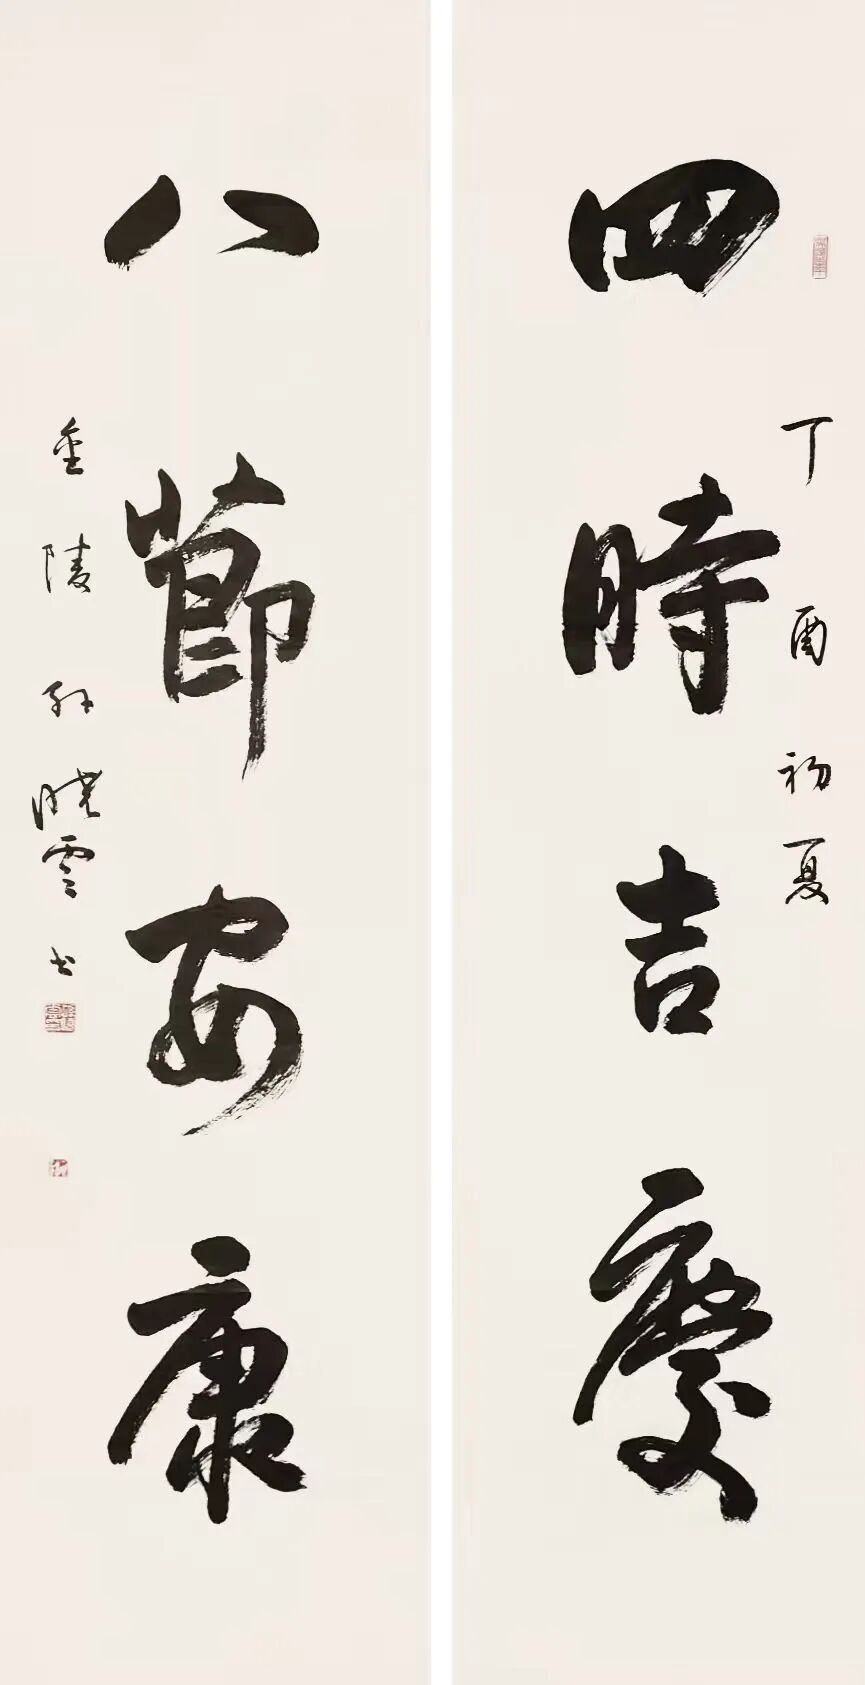 四時吉慶
丁酉初夏
八節安康
金陵孙晓雲书